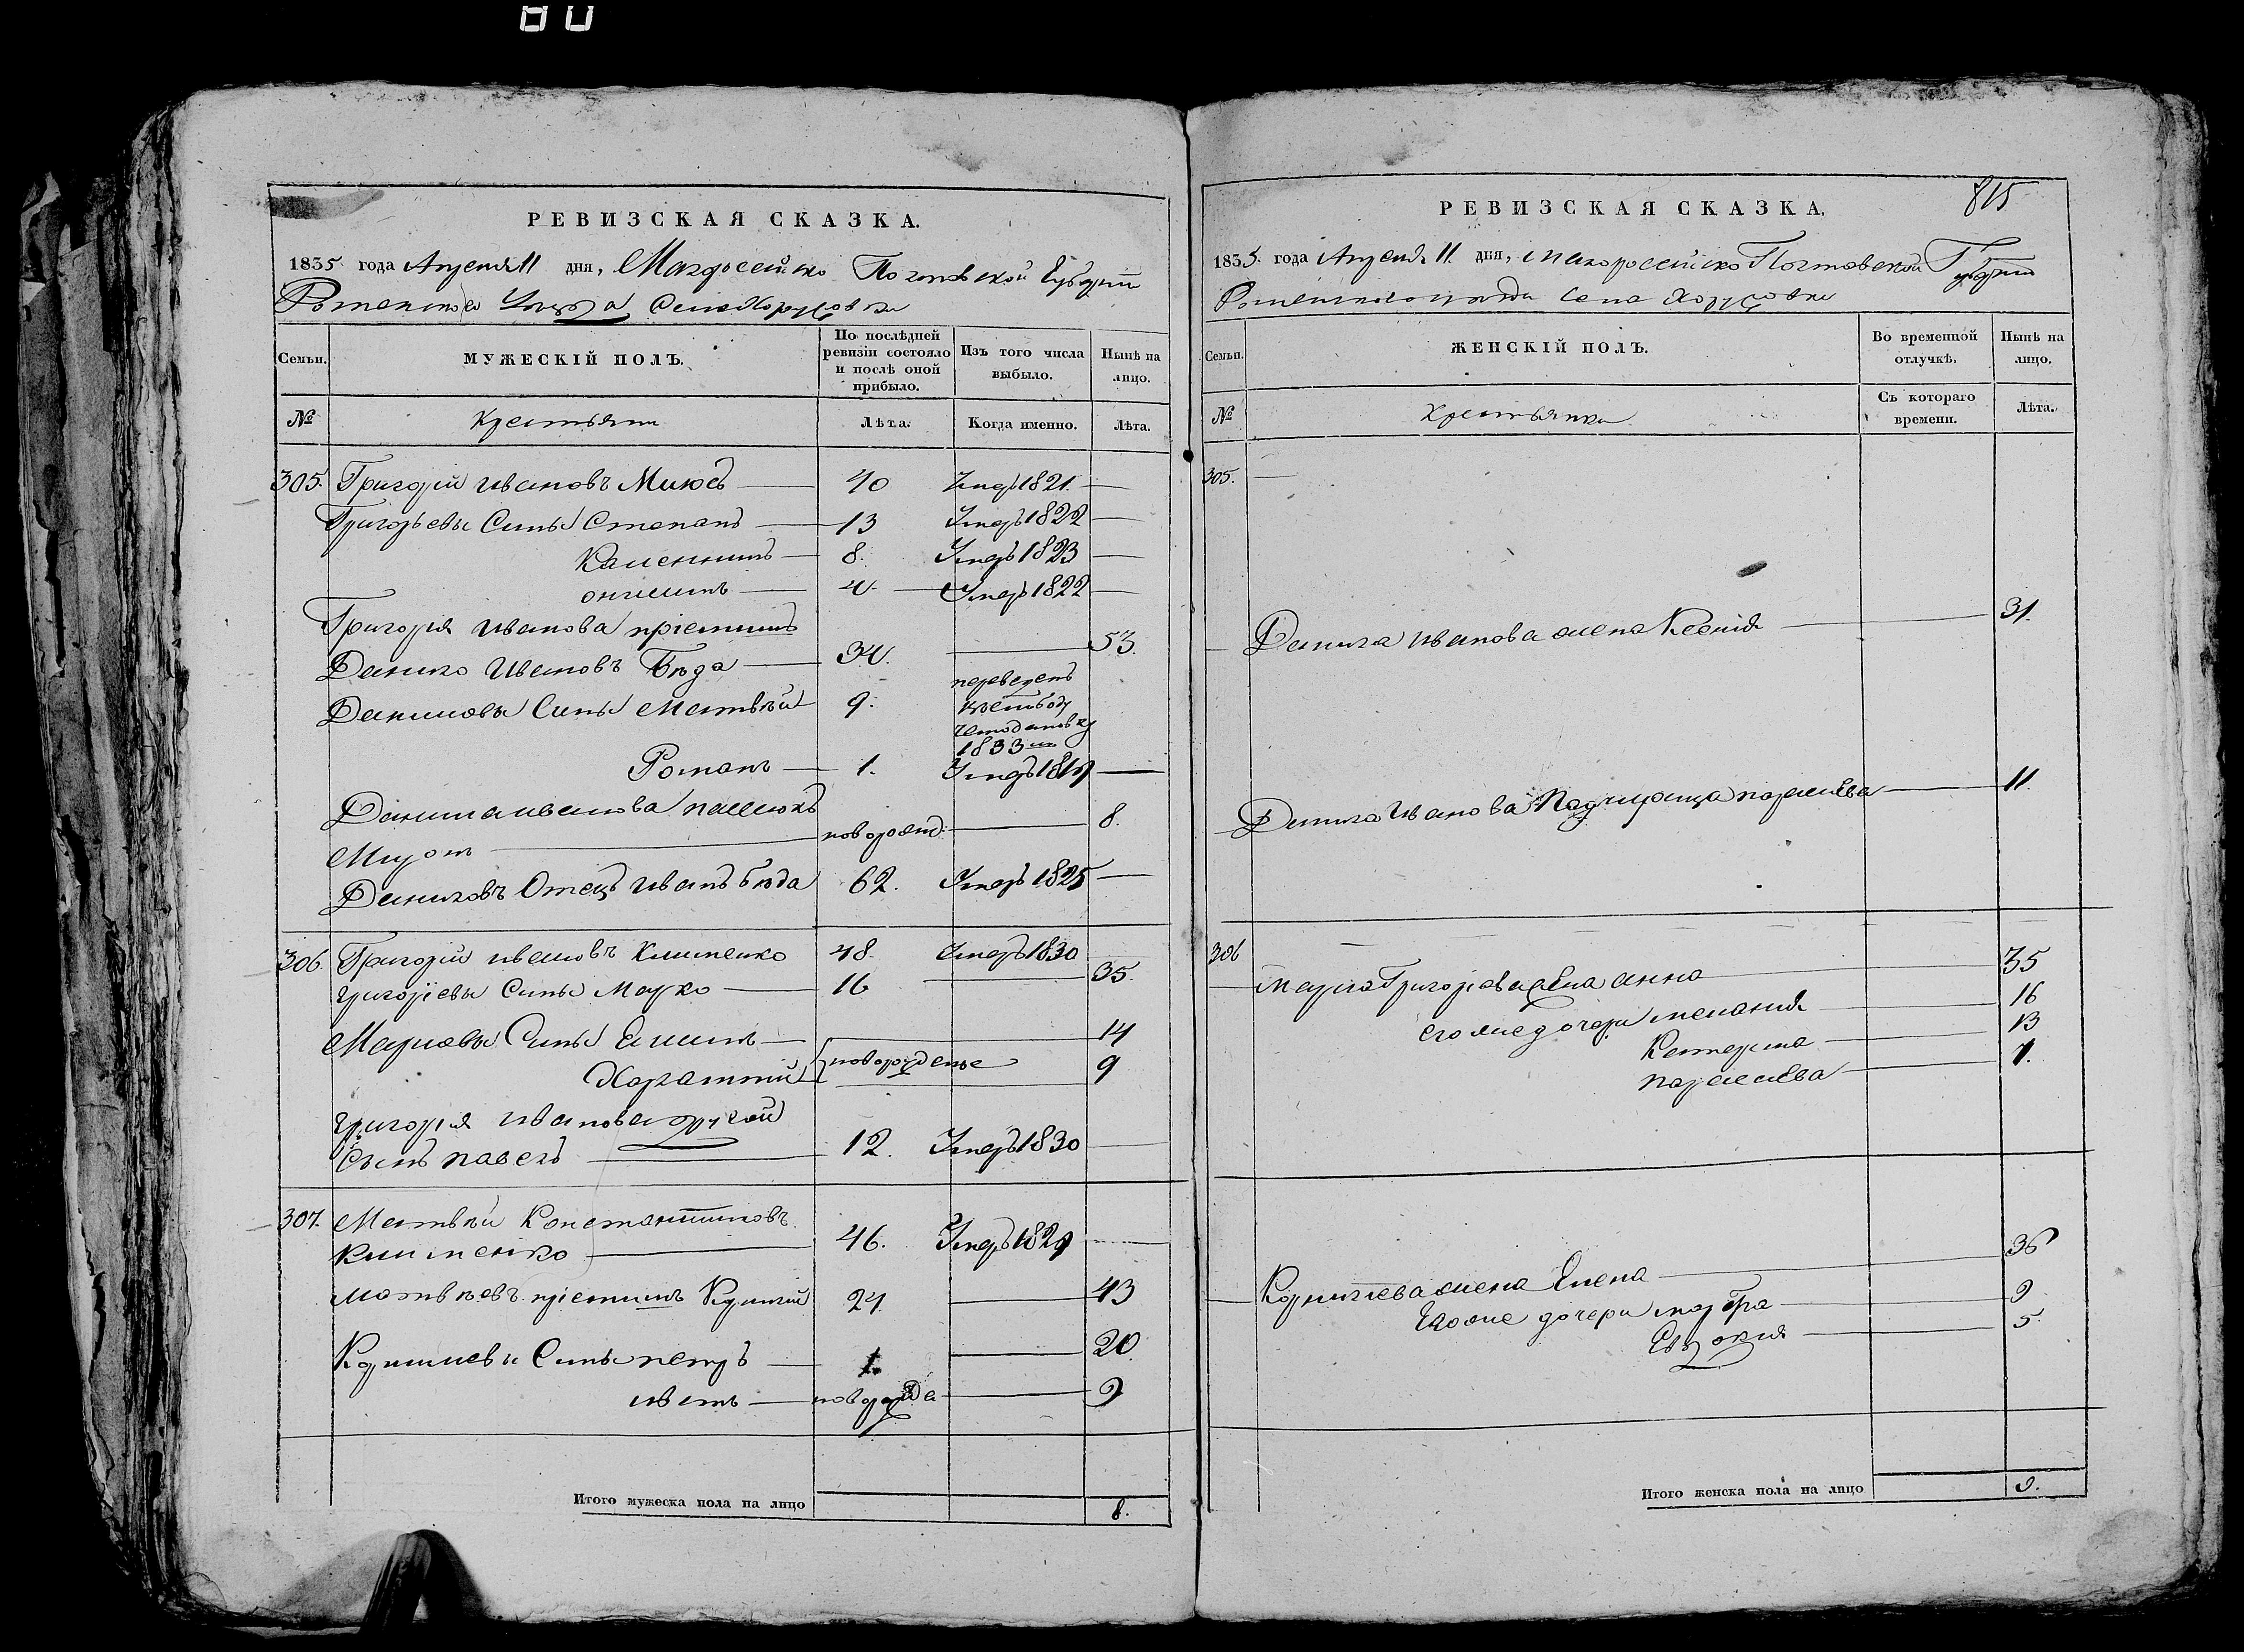 80
РЕВИЗСКАЯ СКАЗКА.
1835 года Апреля 11 дня, Малороссийско Полтавской Губернии
Роменского Уезда Села Хорусовки
Семьи.
МУЖЕСКІЙ ПОЛЪ.
По послѣдней ревизіи состояло и послѣ оной прибыло.
Изъ того числа выбыло.
Нынѣ на лицо.
№
Крестьяни
Лѣта.
Когда именно.
Лѣта.
305. Григорій Ивановъ 40 Умеръ 1821.
Григорьевы Сины Степанъ 13 Умеръ 1822
8. Умеръ 1823
4. Умеръ 1822
Григорія Иванова пріемишъ
Данило Ивановъ Бѣда 34. 53.
Даниловы Сины Матвѣй 9. переведенъ
1833
Романъ 1. Умеръ 1819
Данила Иванова
Миронъ новорожд: 8.
Даниловъ Отецъ Иванъ Бѣда 62. Умеръ 1825
306. Григорій Ивановъ Клименко 48. Умеръ 1830
Григоріевы Сины Марко 16 35.
Марковы Сины 14
новорожденые 9
Григорія Иванова другой
Сынъ Павелъ 12. Умеръ 1830
307. Матвѣй Константиновъ
Клименко 46. Умеръ 1829
Матвѣевъ пріемишъ 24. 43
Сины Петръ 1. 20.
Иванъ 9
Итого мужеска пола на лицо 8.
815
РЕВИЗСКАЯ СКАЗКА.
1835. года Апреля 11. дня, Малороссийско Полтавской Губернии
Роменского уезда Села Хорусовки
Семьи.
ЖЕНСКІЙ ПОЛЪ.
Во временной отлучкѣ,
Нынѣ на лицо.
№
Крестьянки
Съ котораго времени.
Лѣта.
305.
Данила Иванова жена Ксенія 31.
Данила Иванова Падчерица 11.
306
Марка Григоріева жена Анна 35
его же дочери Меланія 16
Катерина 13
1.
жена Елена 36
его же дочери 9
Евдокия 5.
Итого женска пола на лицо 9.